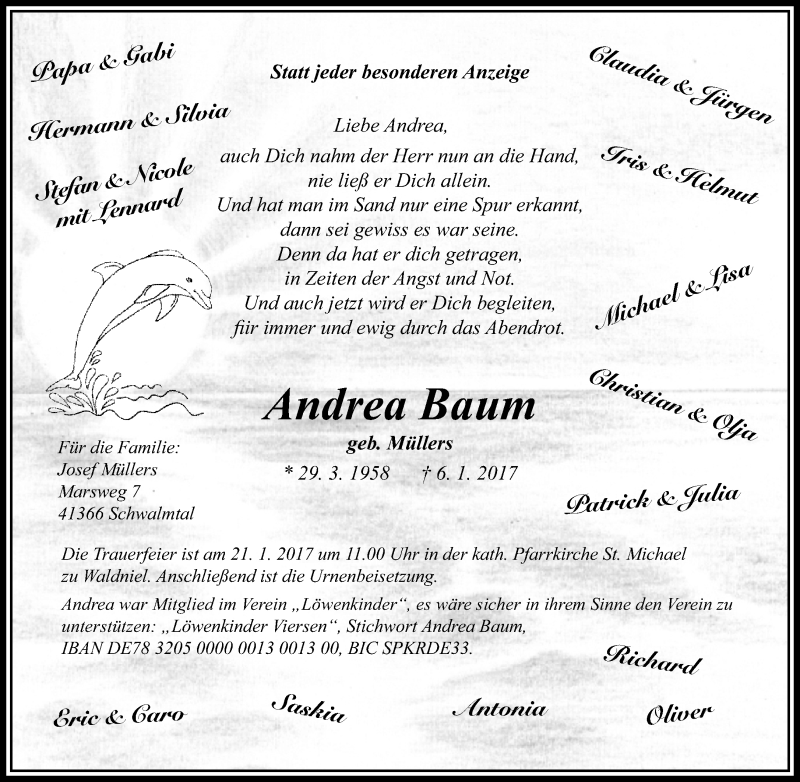 Papa & Gabi
Hermann & Silvia
Stefan & Nicole
mit Lennard
Statt jeder besonderen Anzeige
Claudia & Jürgen
Iris & Helmut
Michael & Lisa
Christian & Olja
Patrick & Julia
Liebe Andrea,
auch Dich nahm der Herr nun an die Hand,
nie ließ er Dich allein.
Und hat man im Sand nur eine Spur erkannt,
dann sei gewiss es war seine.
Denn da hat er dich getragen,
in Zeiten der Angst und Not.
Und auch jetzt wird er Dich begleiten,
für immer und ewig durch das Abendrot.
Andrea Baum
geb. Müllers
* 29. 3. 1958 † 6. 1. 2017
Für die Familie:
Josef Müllers
Marsweg 7
41366 Schwalmtal
Die Trauerfeier ist am 21. 1. 2017 um 11.00 Uhr in der kath. Pfarrkirche St. Michael
zu Waldniel. Anschließend ist die Urnenbeisetzung.
Andrea war Mitglied im Verein „Löwenkinder“, es wäre sicher in ihrem Sinne den Verein zu
unterstützen: „Löwenkinder Viersen“, Stichwort Andrea Baum,
IBAN DE78 3205 0000 0013 0013 00, BIC SPKRDE33.
Richard
Eric & Caro
Saskia
Antonia
Oliver